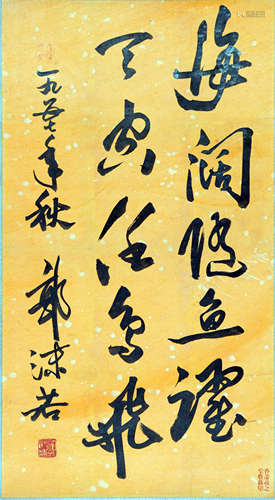 海阔凭鱼跃
天空任鸟飞
一九五七年秋
郭沫若